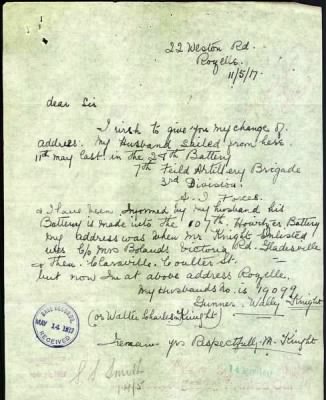 22 Weston Rd.
Rozelle.
11/5/17.
dear Sir
I wish to give you my change of
address. My Husband sailed from here
11th May last. in the 28th Battery
7th Feild Artillery Brigade
3rd Division.
A.I Forces.
& I have been Informed by my husband his
Battery is made into the 107th Howitzer Battery
My address was when Mr Knight Enlisted
was C/o Mrs Bolands Victoria Rd. Gladesville
& Then Claraville. Coulter St.
but now Im at above address Rozelle.
My Husbands no. is 19099
Gunner. Wally Knight
(or Walter Charles Knight)
I remain yrs Respectfully M. Knight
BASE RECORDS.
MAY 14 1917
RECEIVED